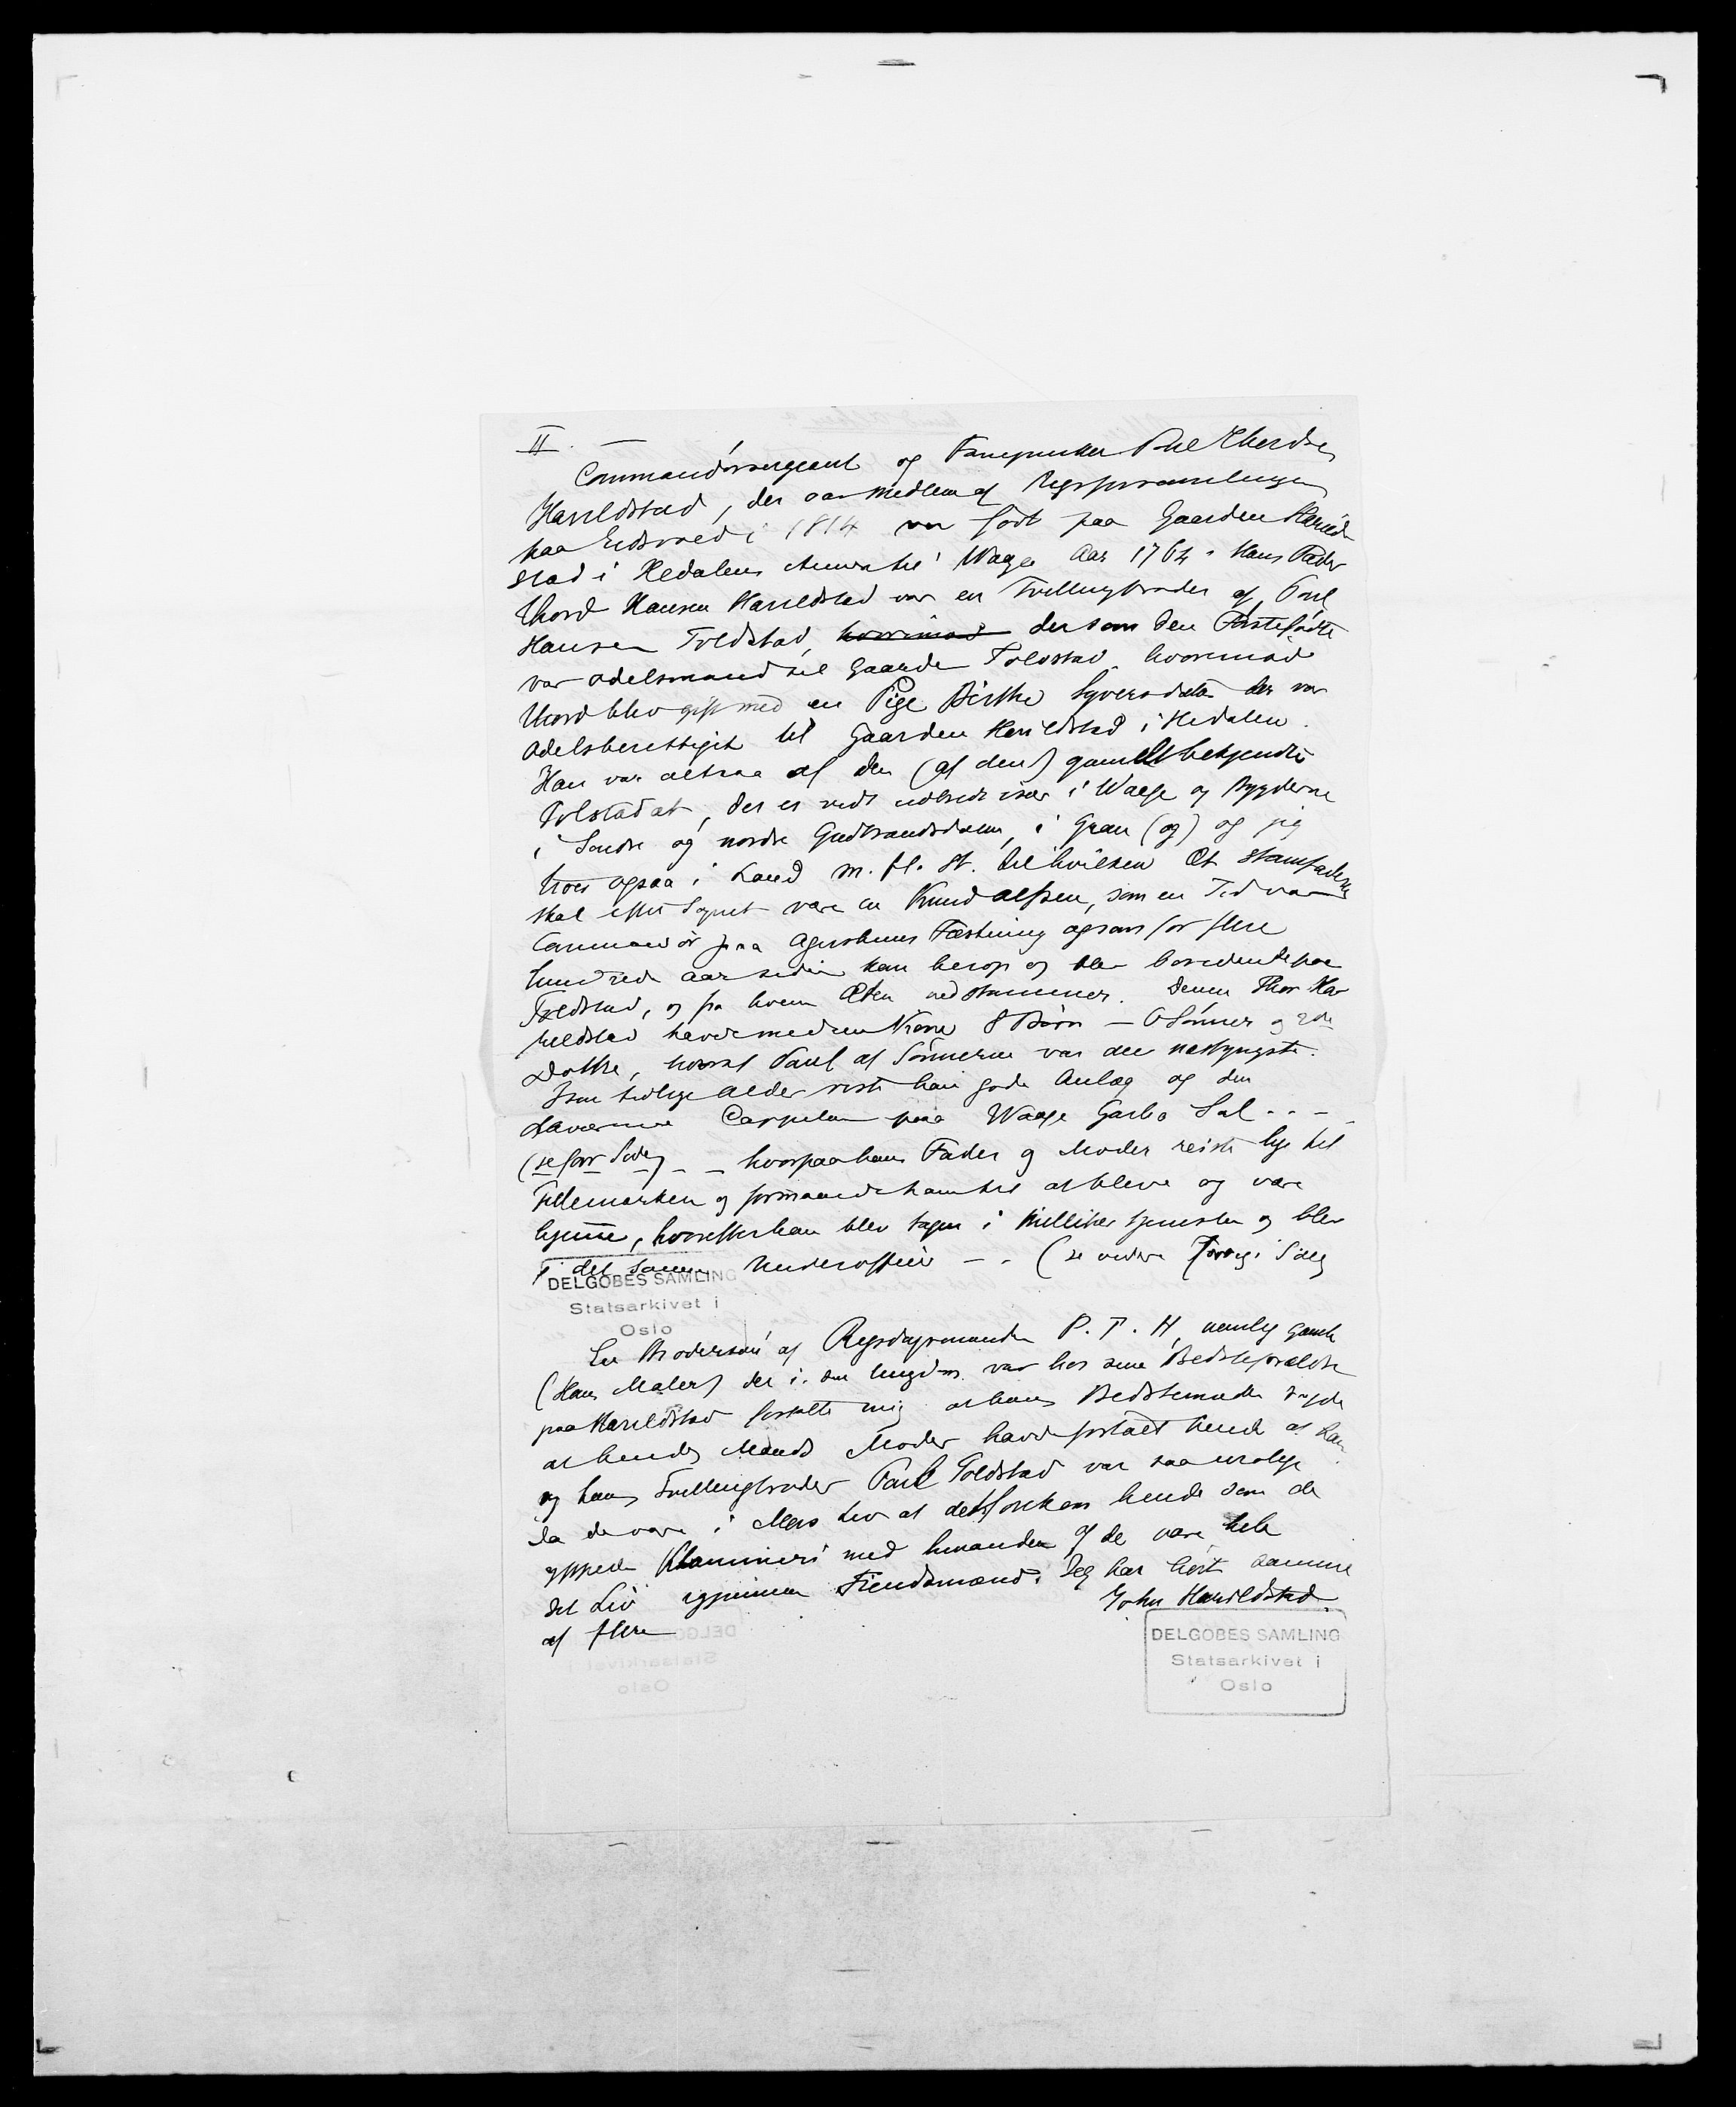 II. —
Commandørsergeant og Fanejunker Poul Thordsen
Harildstad, der var Medlem af Rigsforsamlingen
paa Eidsvold i 1814 var født paa Gaarden Harild-
stad i Hedalens Annex til Waage Aar 1764. Hans Fader
Thord Hansen Harildstad var en Tvillingbroder af Poul
Hansen Toldstad, der som den Førstefødte
var Odelsmand til Gaarden Toldstad hvorimod
Thord blev gift med en Pige Birthe Syversdatter der var
Odelsberettiget til Gaarden Harildstad i Hedalen.
Han var altsaa af den (af den) gamle bekjendte
Tolstadæt, der er vidt udbredt især i Waage og Bygderne
i Søndre og nordre Gudbrandsdalen, i Gran (og) og jeg
troer ogsaa i Land m. fl. St. til hvilken Æt Stamfaderen
skal efter Sagnet være en Knud Alfsen, som en Tid var
Commandør paa Agershuus Fæstning og som for flere
hundrede Aar siden kom herop og blev boende paa
Toldstad, og fra hvem Ætten nedstammer. Denne Thor Ha-
rildstad havde med sin Kone 8 Børn — 6 Sønner og 2de
Døttre, hvoraf Paul af Sønnerne var den næstyngste.
I sin tidlige Alder viste han gode Anlæg og den
daværende Cappelan paa Waage Garbo Sal . . —
(se forr Side) — — hvorpaa hans Fader og Moder reiste lige til
Fillemarken og formaaede ham til at blive og være
hjemme, hvorefter han blev tagen i Millitær tjenesten og blev
i det samme Underofficer — . (se videre forrige Side)
DELGOBES SAMLING
Statsarkivet i
Oslo
En Brodersøn af Rigsdagsmanden P. T. H, nemlig gamle
(Hans Maler) der i sin Ungdom var hos sine Bedsteforældre
paa Harildstad fortalte mig at hans Bedstemoder sagde
at hendes Mands Moder havde fortalt hende at han
og hans Tvillingbroder Paul Toldstad var saa urolige
da de vare i Mors Liv at det forekom hende som de
yppede Klammeri med hinanden og de vare hele
det Liv igjennem Fiendsmænd. Jeg har hørt samme
af flere
John Harildstad.
DELGOBES SAMLING
Statsarkivet i
Oslo